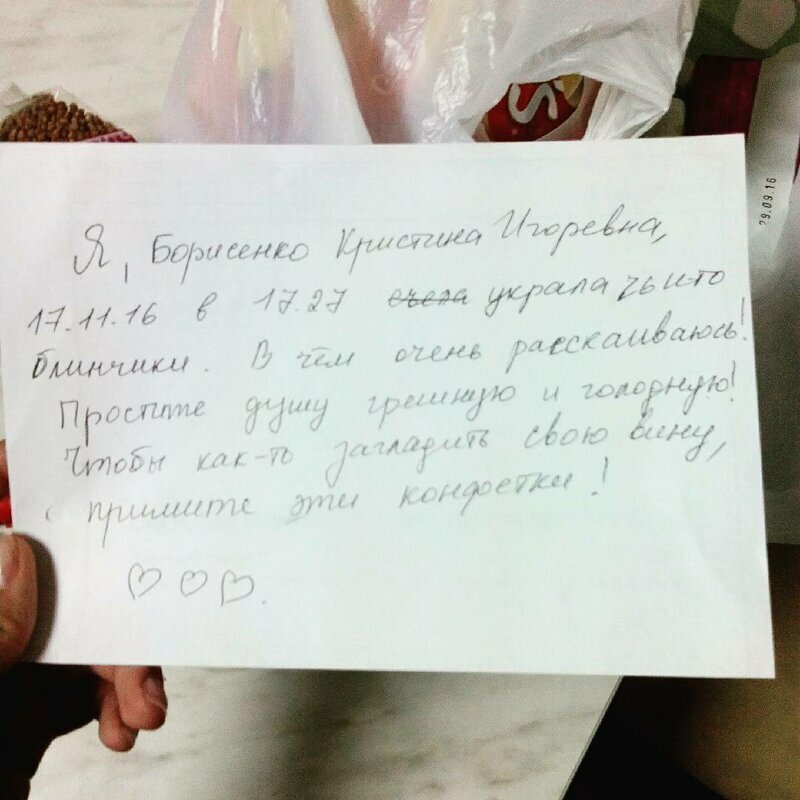 29.09.16
Я, Борисенко Кристина Игоревна,
17.11.16 в 17.27 съела украла чьи-то
блинчики. В чём очень расскаиваюсь!
Простите душу грешную и голодную!
Чтобы как-то загладить свою вину,
примите эти конфетки!
♡♡♡.